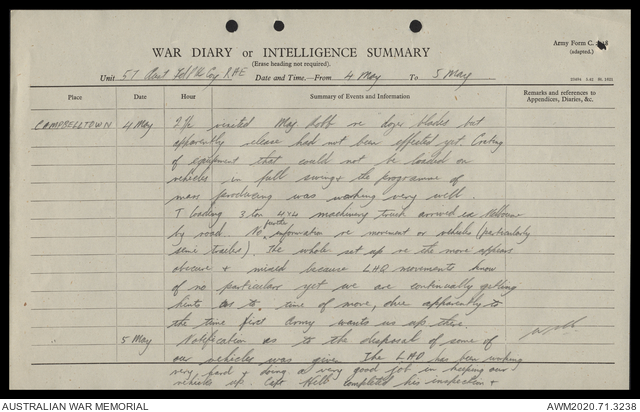 Army Form C.
(adapted.)
WAR DIARY or INTELLIGENCE SUMMARY
(Erase heading not required).
Unit 57 Aust Fd Pk Coy RAE Date and Time.—From 4 May To 5 May
Place Date Hour Summary of Events and Information Remarks and references to
Appendices, Diaries, &c.
CAMPBELLTOWN 4 May visited Maj. re dozer blades but
apparently release had not been effected yet. Crating
of equipment that could not be loaded on
vehicles in full swing & the programme of
mass producing was working very well.
T loading 3 ton 4x4 machinery truck arrived ex Melbourne
by road. No further information re movement or vehicles (particularly
semi trailers). The whole set up re the move appears
obscure & mixed because LHQ movements know
of no particulars yet we are continually getting
hints as to time of move, due apparently to
the time first Army wants us up there.
5 May Notification as to the disposal of some of
our vehicles was given. The LAD has been working
very hard & doing a very good job in keeping our
vehicles up. Capt completed his inspection &
AUSTRALIAN WAR MEMORIAL
AWM2020.71.3238